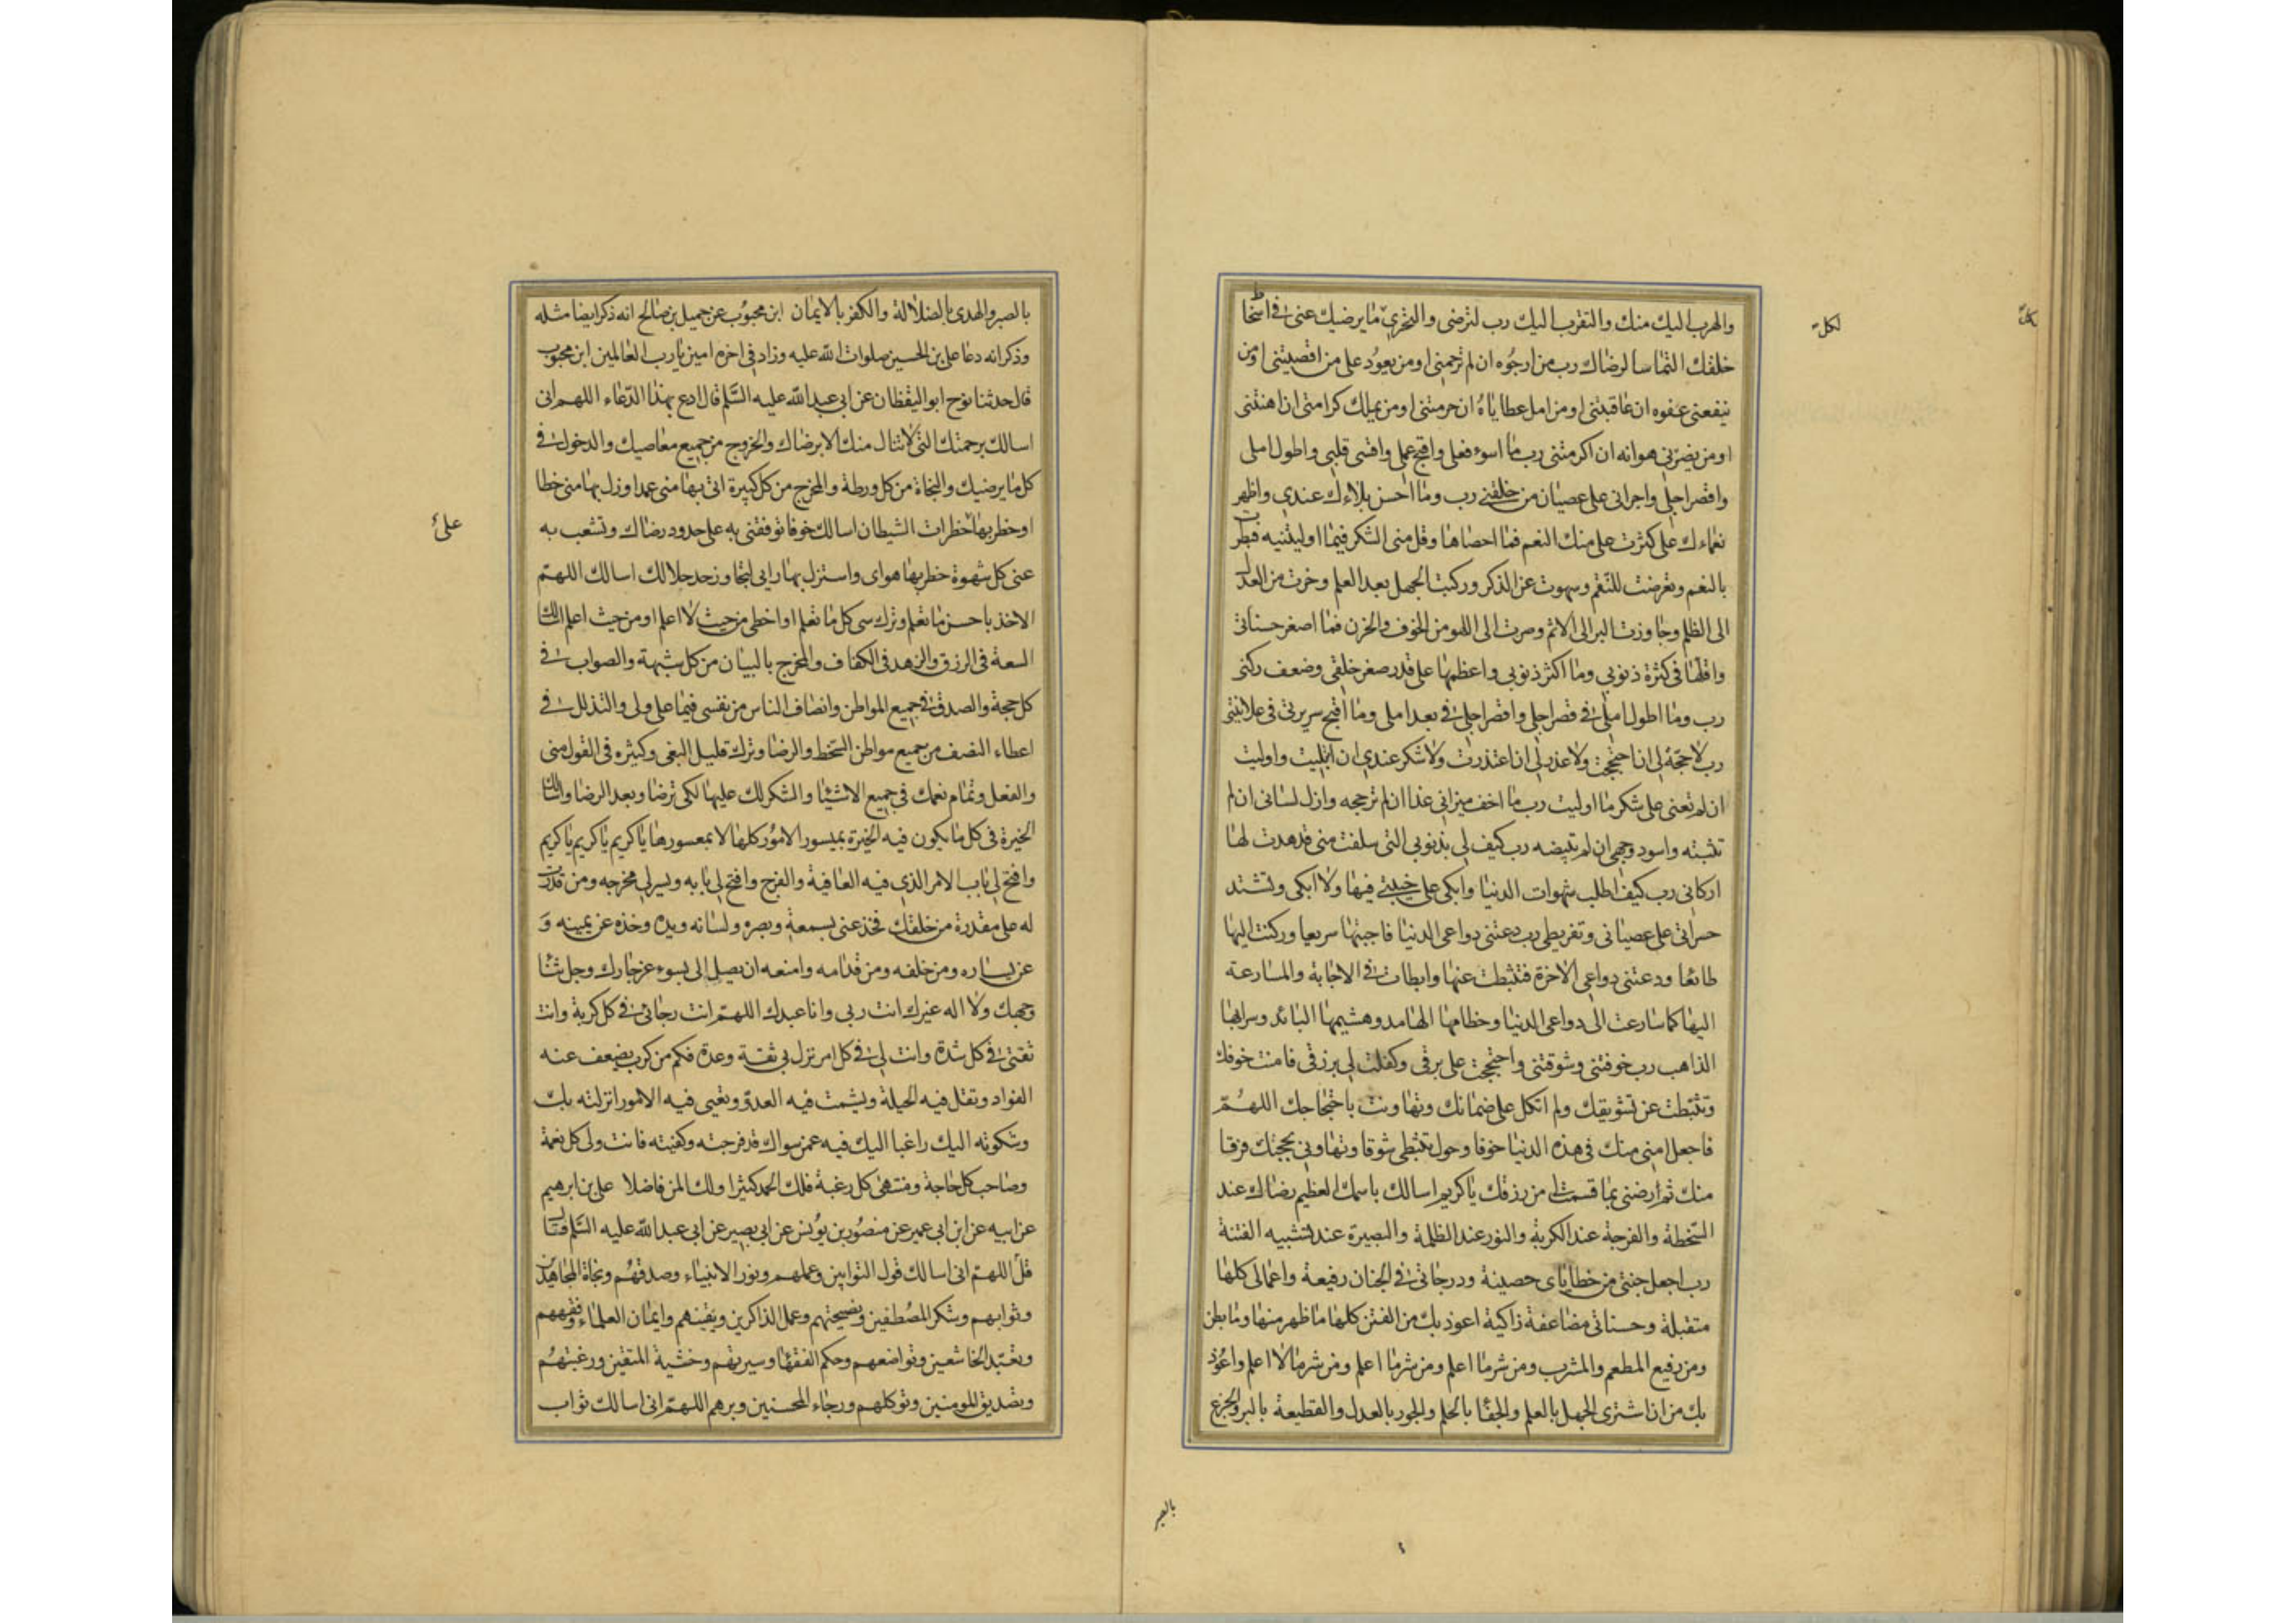 والهرب اليك منك والتقرب اليك رب لترضى والتحري ما يرضيك عنى فى اسخا
خلقك التماسا لرضاك رب من ارجوه ان لم ترحمني او من يعود على من اقصيتنى او من
ينفعنى عفوه ان عاقبتنى او من امل عطاياه ان حرمتنى او من يملك كرامتى ان اهنتنى
او من يضرنى هوانه ان اكرمتنى رب ما اسوء فعلى واقبح عملى واقسى قلبى واطول املى
واقصر اجلى واجرانى على عصيان من خلقنى رب وما احسن بلاءك عندى واظهر
نعماءك على كثرت على منك النعم فما احصاها وقل منى الشكر فيما اوليتنيه فبطرت
بالنعم وتعرضت للنقم وسهوت عن الذكر وركبت الجهل بعد العلم وجزت من العدل
الى الظلم وجاوزت البر الى الاثم وصرت الى اللهو من الخوف والحزن فما اصغر حسناتى
واقلها فى كثرة ذنوبى وما اكثر ذنوبى واعظمها على قدر صغر خلقى وضعف ركنى
رب وما اطول املى فى قصر اجلى واقصر اجلى فى بعد املى وما اقبح سريرتى فى علانيتى
رب لا حجة لى ان احتججت ولا عذر لى ان اعتذرت ولا شكر عندى ان ابتليت واوليت
ان لم تعنى على شكر ما اوليت رب ما اخف ميزانى غدا ان لم ترجحه وازل لسانى ان لم
تثبته واسود وجهى ان لم تبيضه رب كيف لى بذنوبى التى سلفت منى قد هدت لها
اركانى رب كيف اطلب شهوات الدنيا وابكى على خيبتى فيها ولا ابكى وتشتد
حسراتى على عصيانى وتفريطى رب دعتنى دواعى الدنيا فاجبتها سريعا وركنت اليها
طائعا ودعتنى دواعى الاخرة فتثبطت عنها وابطات فى الاجابة والمسارعة
اليها كما سارعت الى دواعى الدنيا وحطامها الهامد وهشيمها البائد وسرابها
الذاهب رب خوفتنى وشوقتنى واحتججت على برقى وكفلت لى برزقى فامنت خوفك
وتثبطت عن تشويقك ولم اتكل على ضمانك وتهاونت باحتجاجك اللهم
فاجعل امنى منك فى هذه الدنيا خوفا وحول تثبطى شوقا وتهاونى بحجتك فرقا
منك ثم ارضنى بما قسمت لى من رزقك يا كريم اسالك باسمك العظيم رضاك عند
السخطة والفرجة عند الكربة والنور عند الظلمة والبصيرة عند تشبيه الفتنة
رب اجعل جنتى من خطاياى حصينة ودرجاتى فى الجنان رفيعة واعمالى كلها
متقبلة وحسناتى مضاعفة زاكية اعوذ بك من الفتن كلها ما ظهر منها وما بطن
ومن رفيع المطعم والمشرب ومن شر ما اعلم ومن شر ما اعلم ومن شر ما لا اعلم واعوذ
بك من ان اشترى الجهل بالعلم والجفا بالحلم والجور بالعدل والقطيعة بالبر والجزع
لكل
بالصبر
بالصبر والهدى بالضلالة والكفر بالايمان ابن محبوب عن جميل بن صالح انه ذكر ايضا مثله
وذكر انه دعا على بن الحسين صلوات الله عليه وزاد فى اخره امين يا رب العالمين ابن محبوب
قال حدثنا نوح ابو اليقظان عن ابى عبد الله عليه السلم قال ادع بهذا الدعاء اللهم انى
اسالك برحمتك التى لا تنال منك الا برضاك والخروج من جميع معاصيك والدخول فى
كل ما يرضيك والنجاة من كل ورطة والمخرج من كل كبيرة اتى بها منى عمد او زل بها منى خطا
او خطر بها خطرات الشيطان اسالك خوفا توفقنى به على حدود رضاك وتشعب به
عنى كل شهوة خطر بها هواى واستزل بها رايى لتجاوز حد حلالك اسالك اللهم
الاخذ باحسن ما تعلم وترك سى كل ما تعلم او اخطى من حيث لا اعلم او من حيث اعلم اسالك
السعة فى الرزق والزهد فى الكفاف والمخرج بالبيان من كل شبهة والصواب فى
كل حجة والصدق فى جميع المواطن وانصاف الناس من نفسى فيما على ولى والتذلل فى
اعطاء النصف من جميع مواطن السخط والرضا وترك قليل البغى وكثيره فى القول منى
والفعل وتمام نعمك فى جميع الاشيا والشكر لك عليها لكى ترضا وبعد الرضا واسالك
الخيرة فى كل ما يكون فيه الخيرة بميسور الامور كلها لا بمعسورها يا كريم يا كريم يا كريم
وافتح لى باب الامر الذى فيه العافية والفرج وافتح لى بابه ويسر لى مخرجه ومن قدرت
له على مقدرة من خلقك فخذ عنى بسمعه وبصره ولسانه ويده وخذه عن يمينه و
عن يساره ومن خلفه ومن قدامه وامنعه ان يصل الى بسوء عز جارك وجل ثنا
وجهك ولا اله غيرك انت ربى وانا عبدك اللهم انت رجائى فى كل كربة وانت
ثقتى فى كل شدة وانت لى فى كل امر نزل بى ثقة وعدة فكم من كرب يضعف عنه
الفواد وتقل فيه الحيلة ويشمت فيه العدو وتعيى فيه الامور انزلته بك
وشكوته اليك راغبا اليك فيه عمن سواك قد فرجته وكفيته فانت ولى كل نعمة
وصاحب كل حاجة ومنتهى كل رغبة فلك الحمد كثيرا ولك المن فاضلا على بن ابرهيم
عن ابيه عن ابن ابى عمير عن منصور بن يونس عن ابى بصير عن ابى عبد الله عليه السلم قال
قل اللهم انى اسالك قول التوابين وعملهم ونور الانبياء وصدقهم ونجاة المجاهدين
وثوابهم وشكر المصطفين ونصيحتهم وعمل الذاكرين ويقينهم وايمان العلماء وفقههم
وتعبد الخاشعين وتواضعهم وحكم الفقها وسيرتهم وخشية المتقين ورغبتهم
وتصديق المومنين وتوكلهم ورجاء المحسنين وبرهم اللهم انى اسالك ثواب
على